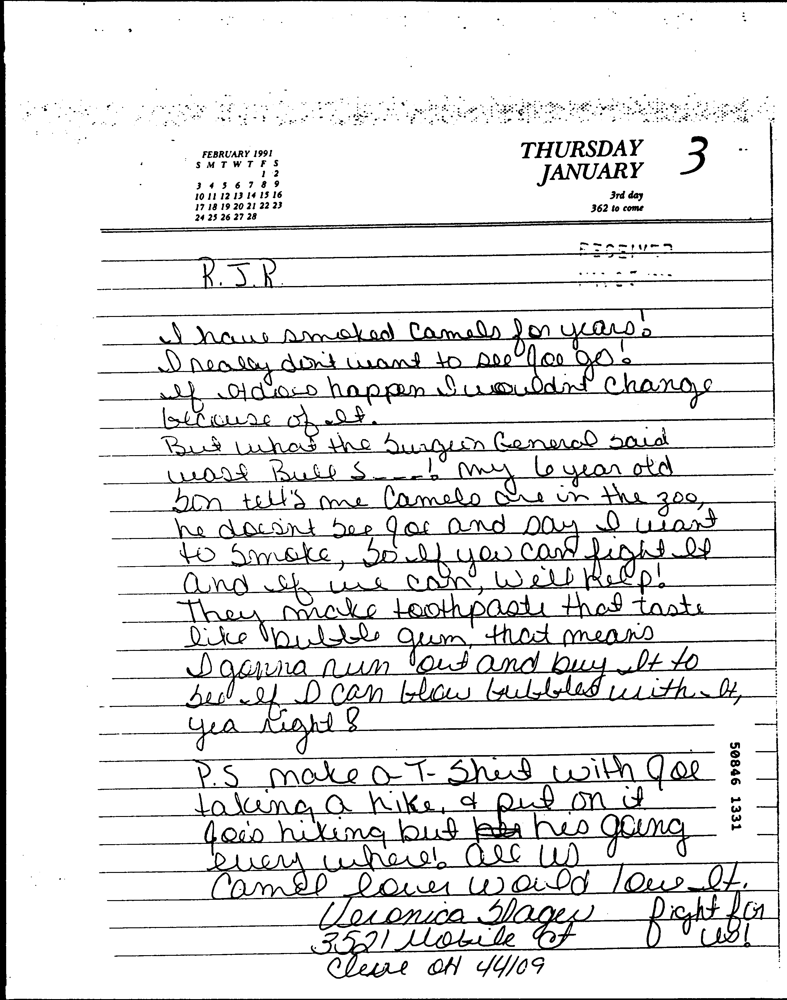 FEBRUARY 1991
S M T W T F S
1 2
3 4 5 6 7 8 9
10 11 12 13 14 15 16
17 18 19 20 21 22 23
24 25 26 27 28
THURSDAY 3
JANUARY
3rd day
362 to come
RECEIVED
R.J.R.
I have smoked Camels for years!
I really dont want to see Joe go!
If it does happen I wouldnt change
because of it.
But what the Surgeon General said
was Bull S---! my 6 year old
son tell's me Camels are in the zoo,
he doesnt see Joe and say I want
to smoke, So if you can fight it
and if we can, we'll help!
They make toothpaste that taste
like bubble gum, that means
I gonna run out and buy it to
see if I can blow bubbles with it,
yea right!
P.S make a T-Shirt with Joe
taking a hike, & put on it
Joe's hiking but his going
every where! all us
Camel lover would love it.
Veronica Slager fight for
3521 Mobile Ct us!
Cleve OH 44109
50846 1331